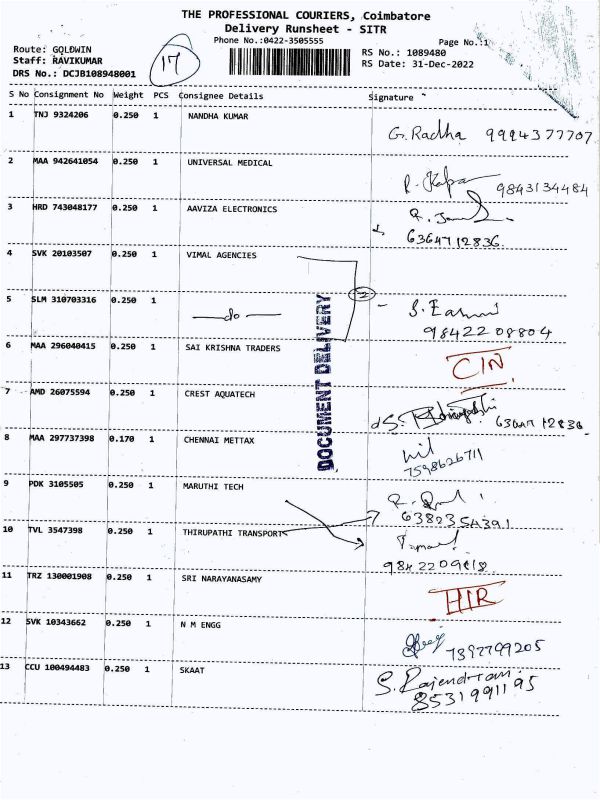 THE PROFESSIONAL COURIERS, Coimbatore
Delivery Runsheet - SITR
Phone No.:0422-3505555
Page No.:1
Route: GOLDWIN
Staff: RAVIKUMAR
DRS No.: DCJB108948001
17
RS No.: 1089480
RS Date: 31-Dec-2022
S No Consignment No Weight PCS Consignee Details Signature
1 TNJ 9324206 0.250 1 NANDHA KUMAR
G. Radha 9994377707
2 MAA 942641054 0.250 1 UNIVERSAL MEDICAL
9843134484
3 HRD 743048177 0.250 1 AAVIZA ELECTRONICS
6364712836
4 SVK 20103507 0.250 1 VIMAL AGENCIES
2
5 SLM 310703316 0.250 1 —do—
9842208804
6 MAA 296040415 0.250 1 SAI KRISHNA TRADERS
CIN
DOCUMENT DELIVERY
7 AMD 26075594 0.250 1 CREST AQUATECH
8 MAA 297737398 0.170 1 CHENNAI METTAX
7598626711
9 PDK 3105505 0.250 1 MARUTHI TECH
6382354391
10 TVL 3547398 0.250 1 THIRUPATHI TRANSPORT
11 TRZ 130001908 0.250 1 SRI NARAYANASAMY
HIR
12 SVK 10343662 0.250 1 N M ENGG
13 CCU 100494483 0.250 1 SKAAT
S. Rajendran
8531991195